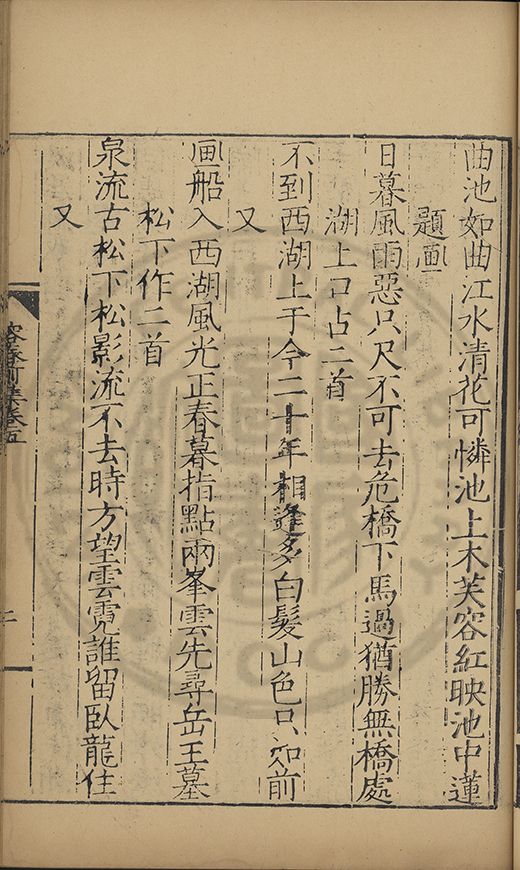 曲池如曲江水清花可憐池上木芙容紅映池中蓮
題画
日暮風雨惡只尺不可去危橋下馬過猶勝無橋處
湖上口占二首
不到西湖上于今二十年相逢多白髮山色只如前
又
画船入西湖風光正春暮指點兩峯雲先尋岳王墓
松下作二首
泉流古松下松影流不去時方望雲霓誰留臥龍住
又
容春前集卷五